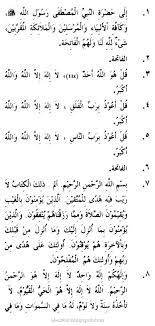 ١. إِلَى حَضْرَةِ النَّبِيِّ الْمُصْطَفَى رَسُوْلِ اللَّهِ ﷺ،
وَكَافَّةِ الْأَنْبِيَاءِ وَالْمُرْسَلِيْنَ وَالْمَلَائِكَةِ الْمُقَرَّبِيْنَ،
شَيْءٌ لِلَّهِ لَنَا وَلَهُمُ الْفَاتِحَةُ.
٢. الفاتحة.
٣. قُلْ هُوَ اللَّهُ أَحَدٌ لَا إِلَهَ إِلَّا اللَّهُ وَاللَّهُ
أَكْبَرُ.
٤. قُلْ أَعُوْذُ بِرَبِّ الْفَلَقِ ، لَا إِلَهَ إِلَّا اللَّهُ وَاللَّهُ
أَكْبَرُ.
٥. قُلْ أَعُوْذُ بِرَبِّ النَّاسِ ، لَا إِلَهَ إِلَّا اللَّهُ وَاللَّهُ
أَكْبَرُ.
٦. الفاتحة.
٧. بِسْمِ اللَّهِ الرَّحْمَنِ الرَّحِيْمِ. الم ذَلِكَ الْكِتَابُ لَا
رَيْبَ فِيْهِ هُدًى لِلْمُتَّقِيْنَ الَّذِيْنَ يُؤْمِنُوْنَ بِالْغَيْبِ
وَيُقِيْمُوْنَ الصَّلَاةَ وَمِمَّا رَزَقْنَاهُمْ يُنْفِقُوْنَ وَالَّذِيْنَ
يُؤْمِنُوْنَ بِمَا أُنْزِلَ إِلَيْكَ وَمَا أُنْزِلَ مِنْ قَبْلِكَ
وَبِالْآخِرَةِ هُمْ يُوْقِنُوْنَ. أُولَئِكَ عَلَى هُدًى مِنْ
رَبِّهِمْ وَأُولَئِكَ هُمُ الْمُفْلِحُوْنَ.
٨. وَإِلَهُكُمْ إِلَهٌ وَاحِدٌ لَا إِلَهَ إِلَّا هُوَ الرَّحْمَنُ
الرَّحِيْمُ. اللَّهُ لَا إِلَهَ إِلَّا هُوَ الْحَيُّ الْقَيُّوْمُ لَا
تَأْخُذُهُ سِنَةٌ وَلَا نَوْمٌ. لَهُ مَا فِي السَّمَوَاتِ وَمَا فِي